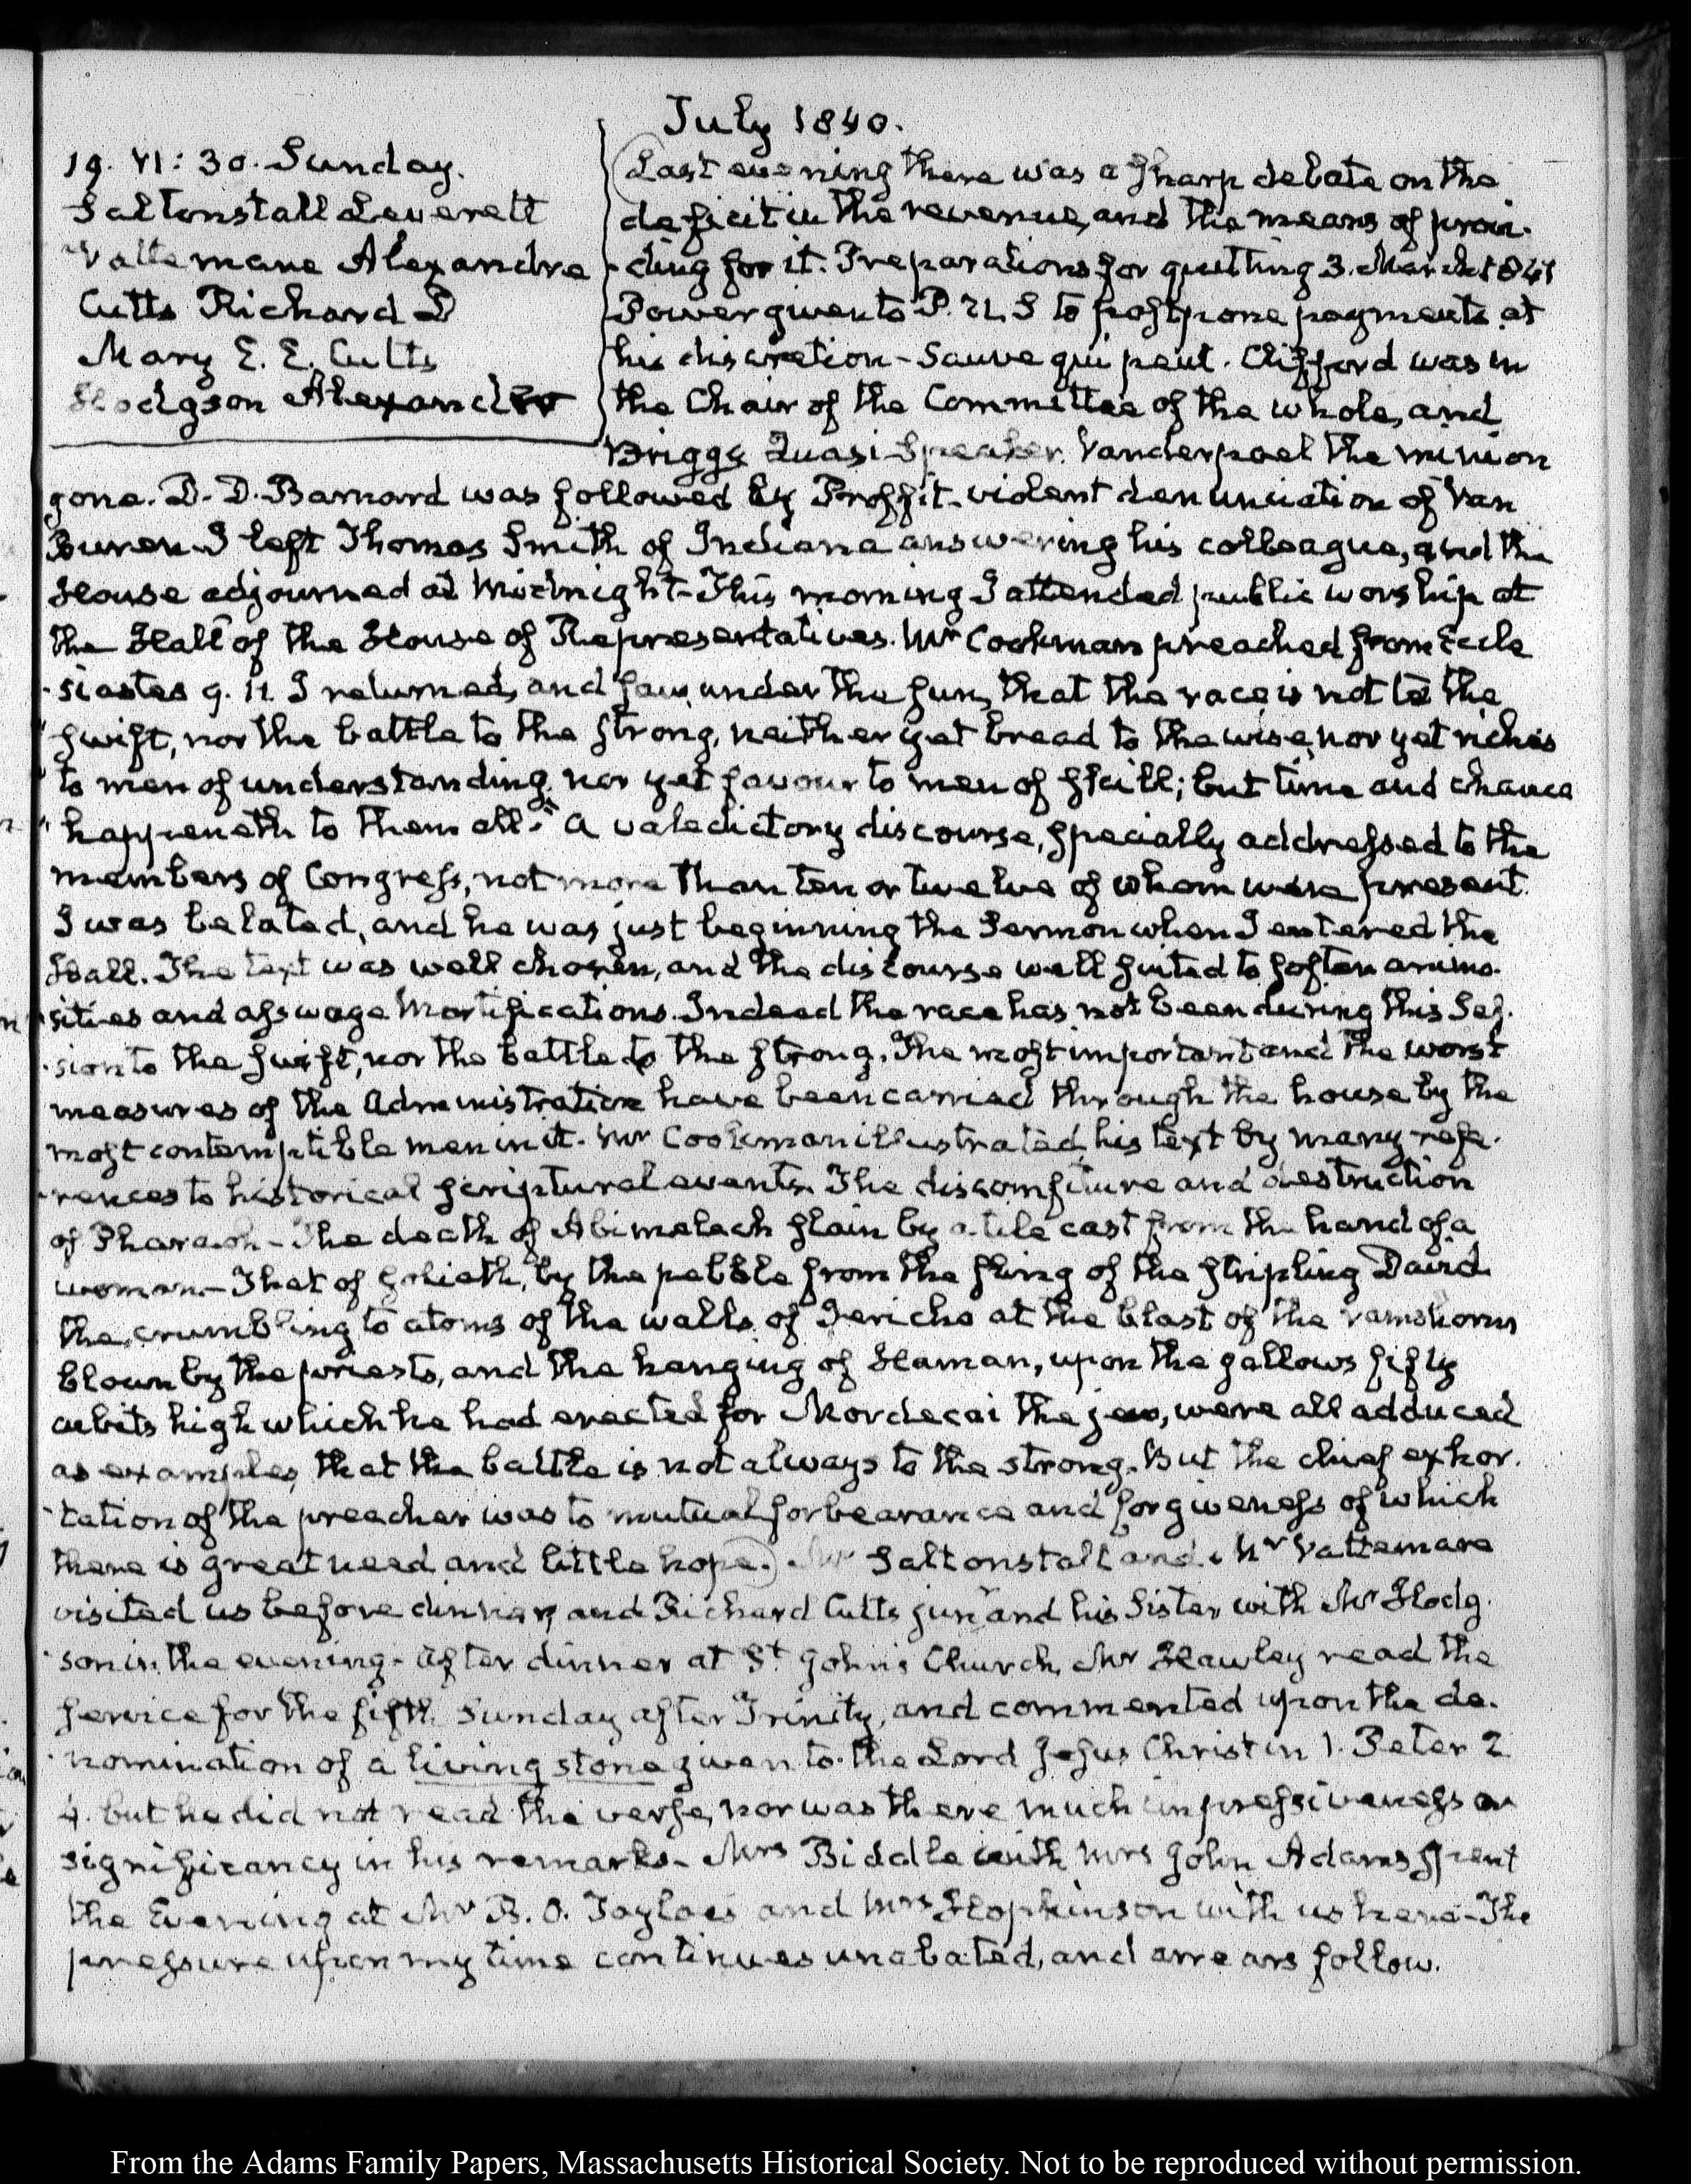 July 1840.
19. VI: 30. Sunday.
Saltonstall Leverett
Vattemare Alexandre
Cutts Richard D
Mary E. E. Cutts
Hodgson Alexander
Last evening there was a sharp debate on the
deficit in the revenue, and the means of provi-
-ding for it. Preparations for quitting 3. March 1841
Power given to P. U. S to postpone payments at
his discretion - Sauve qui peut. Clifford was in
the Chair of the Committee of the whole, and
Briggs Quasi Speaker. Vanderpoel the minion
gone. D. D. Barnard was followed by Proffit - violent denunciation of Van
Buren I left Thomas Smith of Indiana answering his colleague, and the
House adjourned at Midnight - This morning I attended public worship at
the Hall of the House of Representatives. Mr Cookman preached from Eccle
-siastes 9. 11. I returned, and saw under the sun, that the race is not to the
"swift, nor the battle to the strong, neither yet bread to the wise, nor yet riches
"to men of understanding, nor yet favour to men of skill; but time and chance
"happeneth to them all." A valedictory discourse, specially addressed to the
members of Congress, not more than ten or twelve of whom were present.
I was belated, and he was just beginning the Sermon when I entered the
Hall. The text was well chosen, and the discourse well suited to soften animo-
-sities and asswage Mortifications. Indeed the race has not been during this Ses-
-sion to the swift, nor the battle to the strong. The most important and the worst
measures of the Administration have been carried through the house by the
most contemptible men in it. Mr Cookman illustrated his text by many refe-
-rences to historical scriptural events. The discomfiture and destruction
of Pharaoh - The death of Abimelech slain by a tile cast from the hand of a
woman - That of Goliath, by the pebble from the sling of the stripling David
the crumbling to atoms of the walls of Jericho at the blast of the ramshorns
blown by the priests, and the hanging of Haman, upon the gallows fifty
cubits high which he had erected for Mordecai the jew, were all adduced
as examples, that the battle is not always to the strong. But the chief exhor-
-tation of the preacher was to mutual forbearance and forgiveness of which
there is great need and little hope. Mr Saltonstall and Mr Vattemare
visited us before dinner, and Richard Cutts junr and his Sister with Mr Hodg-
-son in the evening - After dinner at St John's Church, Mr Hawley read the
service for the fifth Sunday after Trinity, and commented upon the de-
-nomination of a living stone given to the Lord Jesus Christ in 1. Peter 2
4. but he did not read the verse, nor was there much impressiveness or
significancy in his remarks - Mrs Biddle with Mrs John Adams spent
the Evening at Mr B. O. Tayloe's and Mrs Hopkinson with us here - The
pressure upon my time continues unabated, and arrears follow.
From the Adams Family Papers, Massachusetts Historical Society. Not to be reproduced without permission.